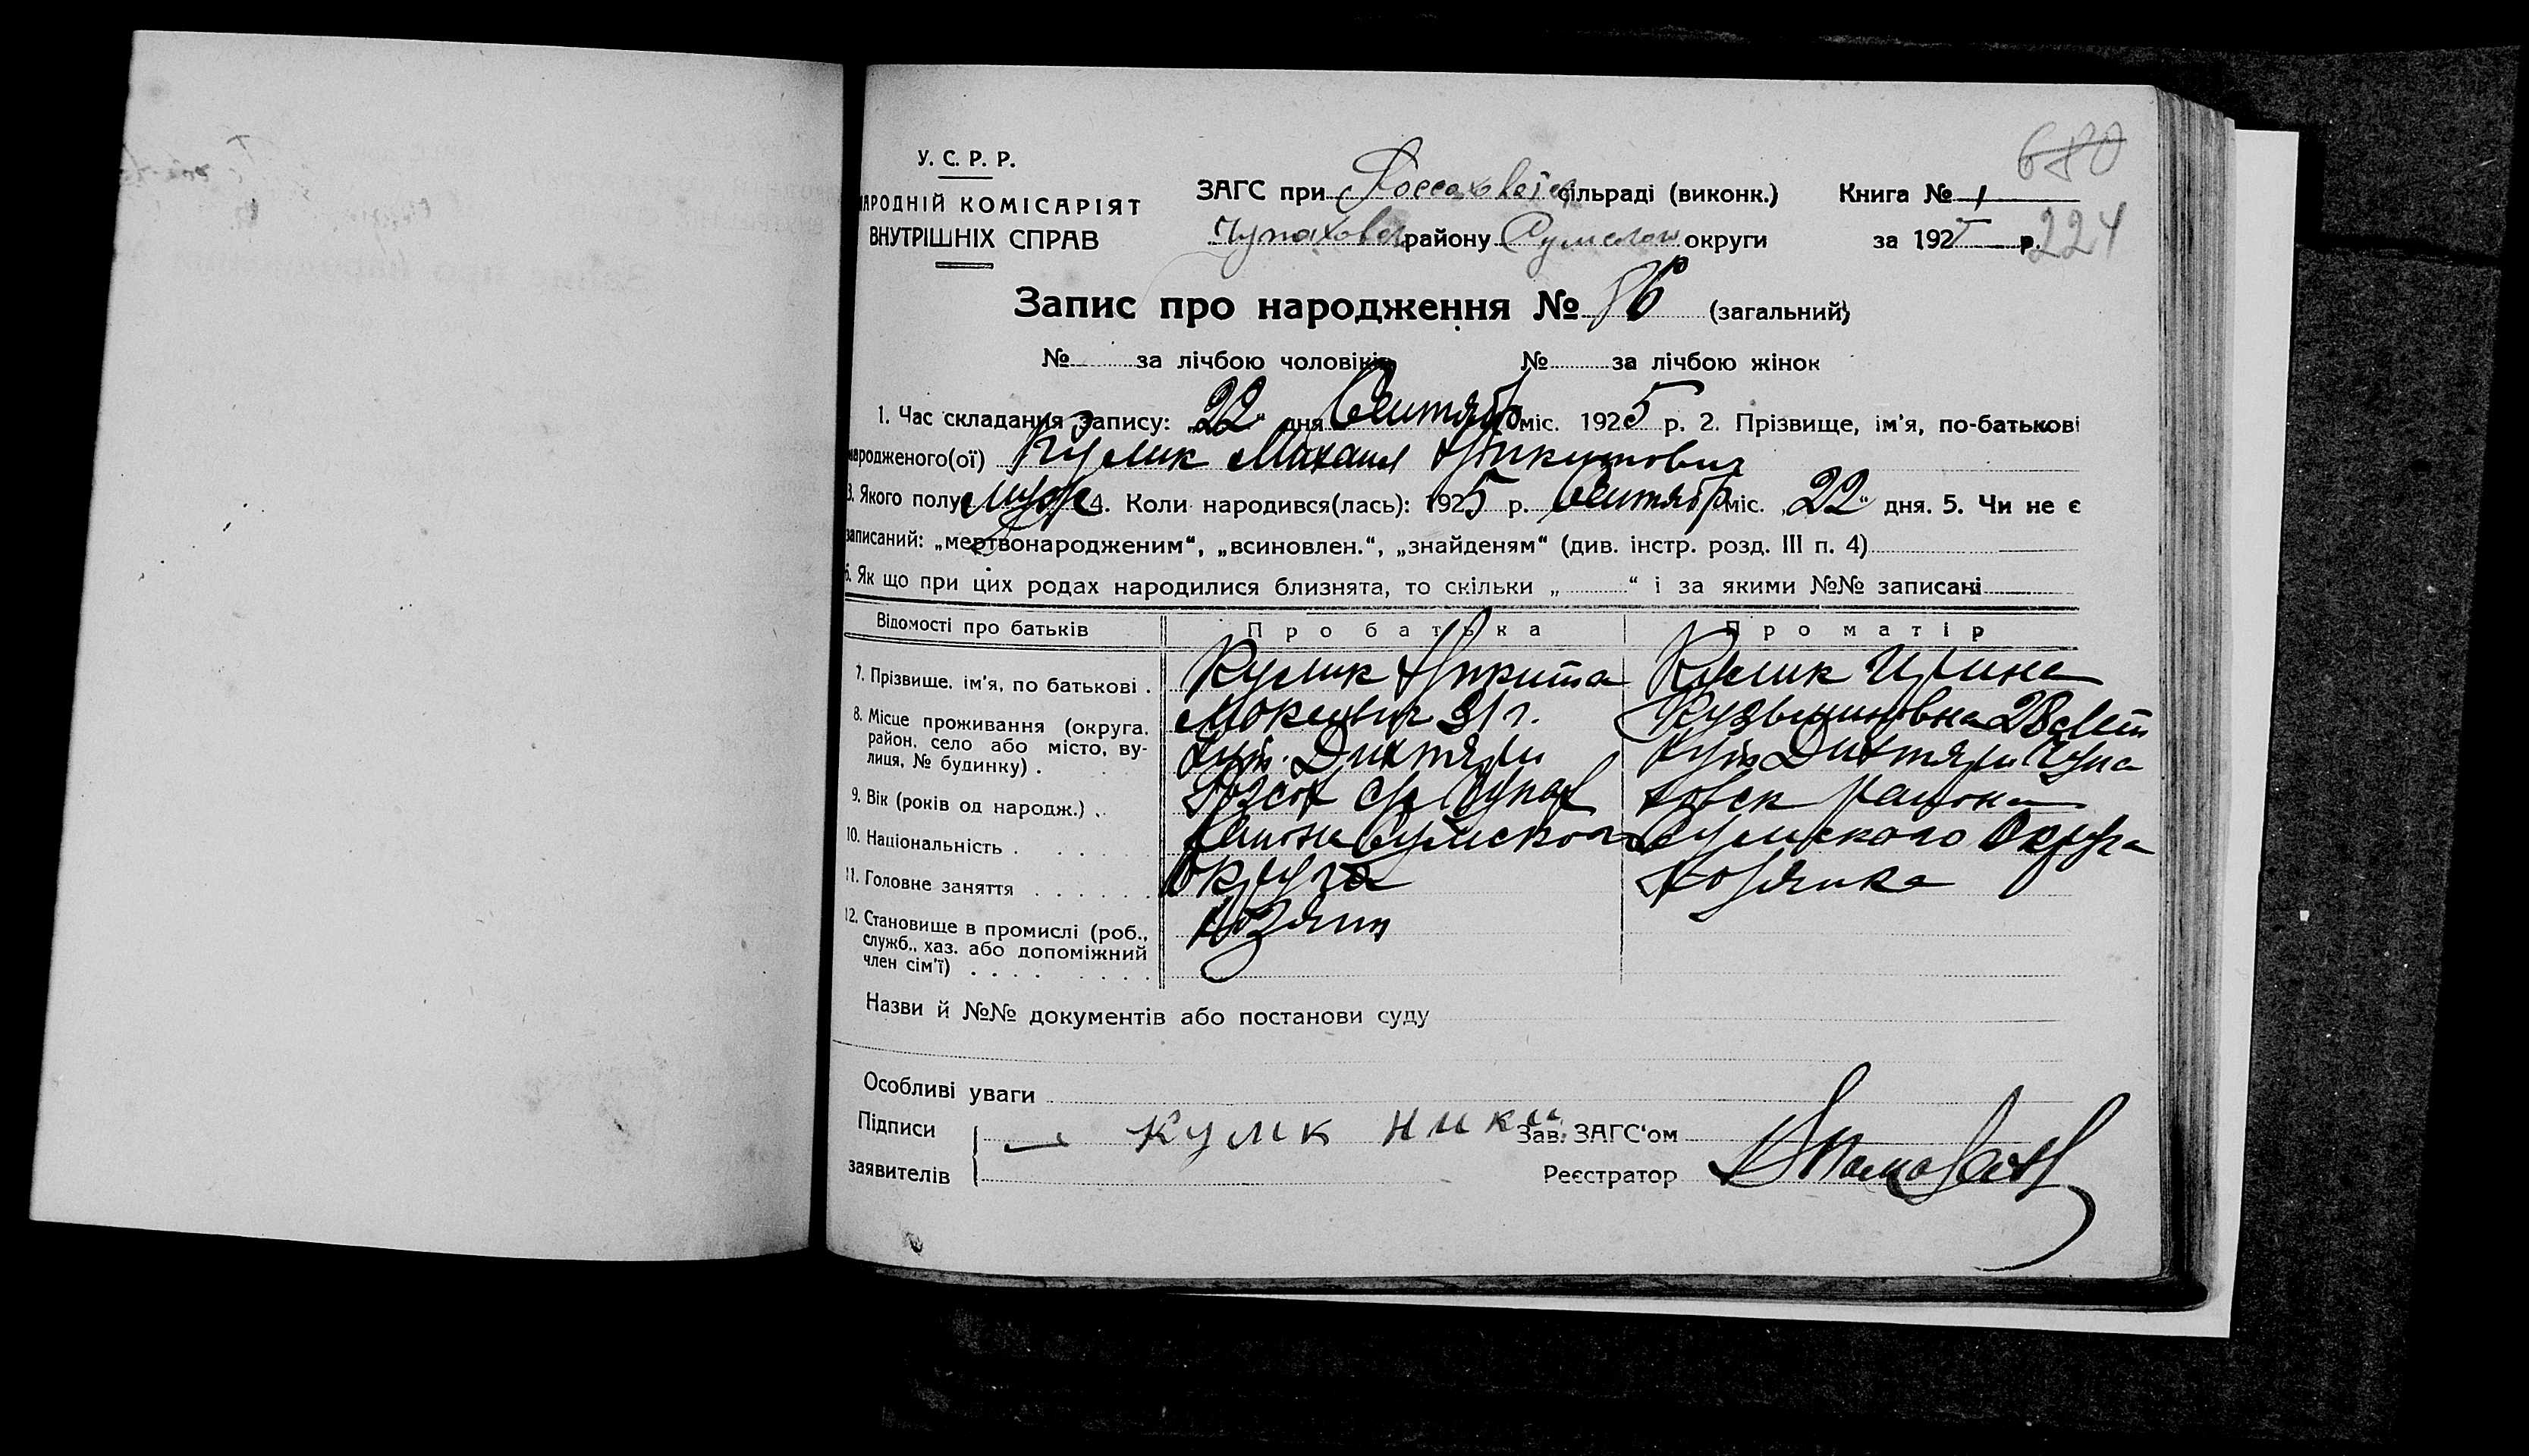 680
У. С. Р. Р.
АРОДНІЙ КОМІСАРІЯТ
ВНУТРІШНІХ СПРАВ
ЗАГС при сільраді (виконк.) Книга № 1
району округи за 1925 р. 224
Запис про народження № 86 (загальний)
№ за лічбою чоловіків № за лічбою жінок
1. Час складання запису: „22“ дня Сентябр міс. 1925 р. 2. Прізвище, ім'я, по-батькові
народженого(ої) Кулик Михаил Никитович
3. Якого полу муж 4. Коли народився(лась): 1925 р. Сентябр міс. „22“ дня. 5. Чи не є
записаний: „мертвонародженим“, „всиновлен.“, „знайденям“ (див. інстр. розд. III п. 4)
6. Як що при цих родах народилися близнята, то скільки „ “ і за якими №№ записані
Відомості про батьків Про батька Про матір
7. Прізвище, ім'я, по батькові . Кулик Никита Кулик Ирина
8. Місце проживання (округа, район, село або місто, вулиця, № будинку) . 31 г. Кузьминовна 28 лет
хут. Дихтяри хут Дихтяри Чупа
9. Вік (років од народж.) . Чупах ховск района
10. Національність . района Сумского Сумского Округа
11. Головне заняття Округа хозяйка
12. Становище в промислі (роб., служб., хаз. або допоміжний член сім'ї) хозяин
Назви й №№ документів або постанови суду
Особливі уваги
Підписи Кулік Ники Зав. ЗАГС'ом
заявителів Реєстратор